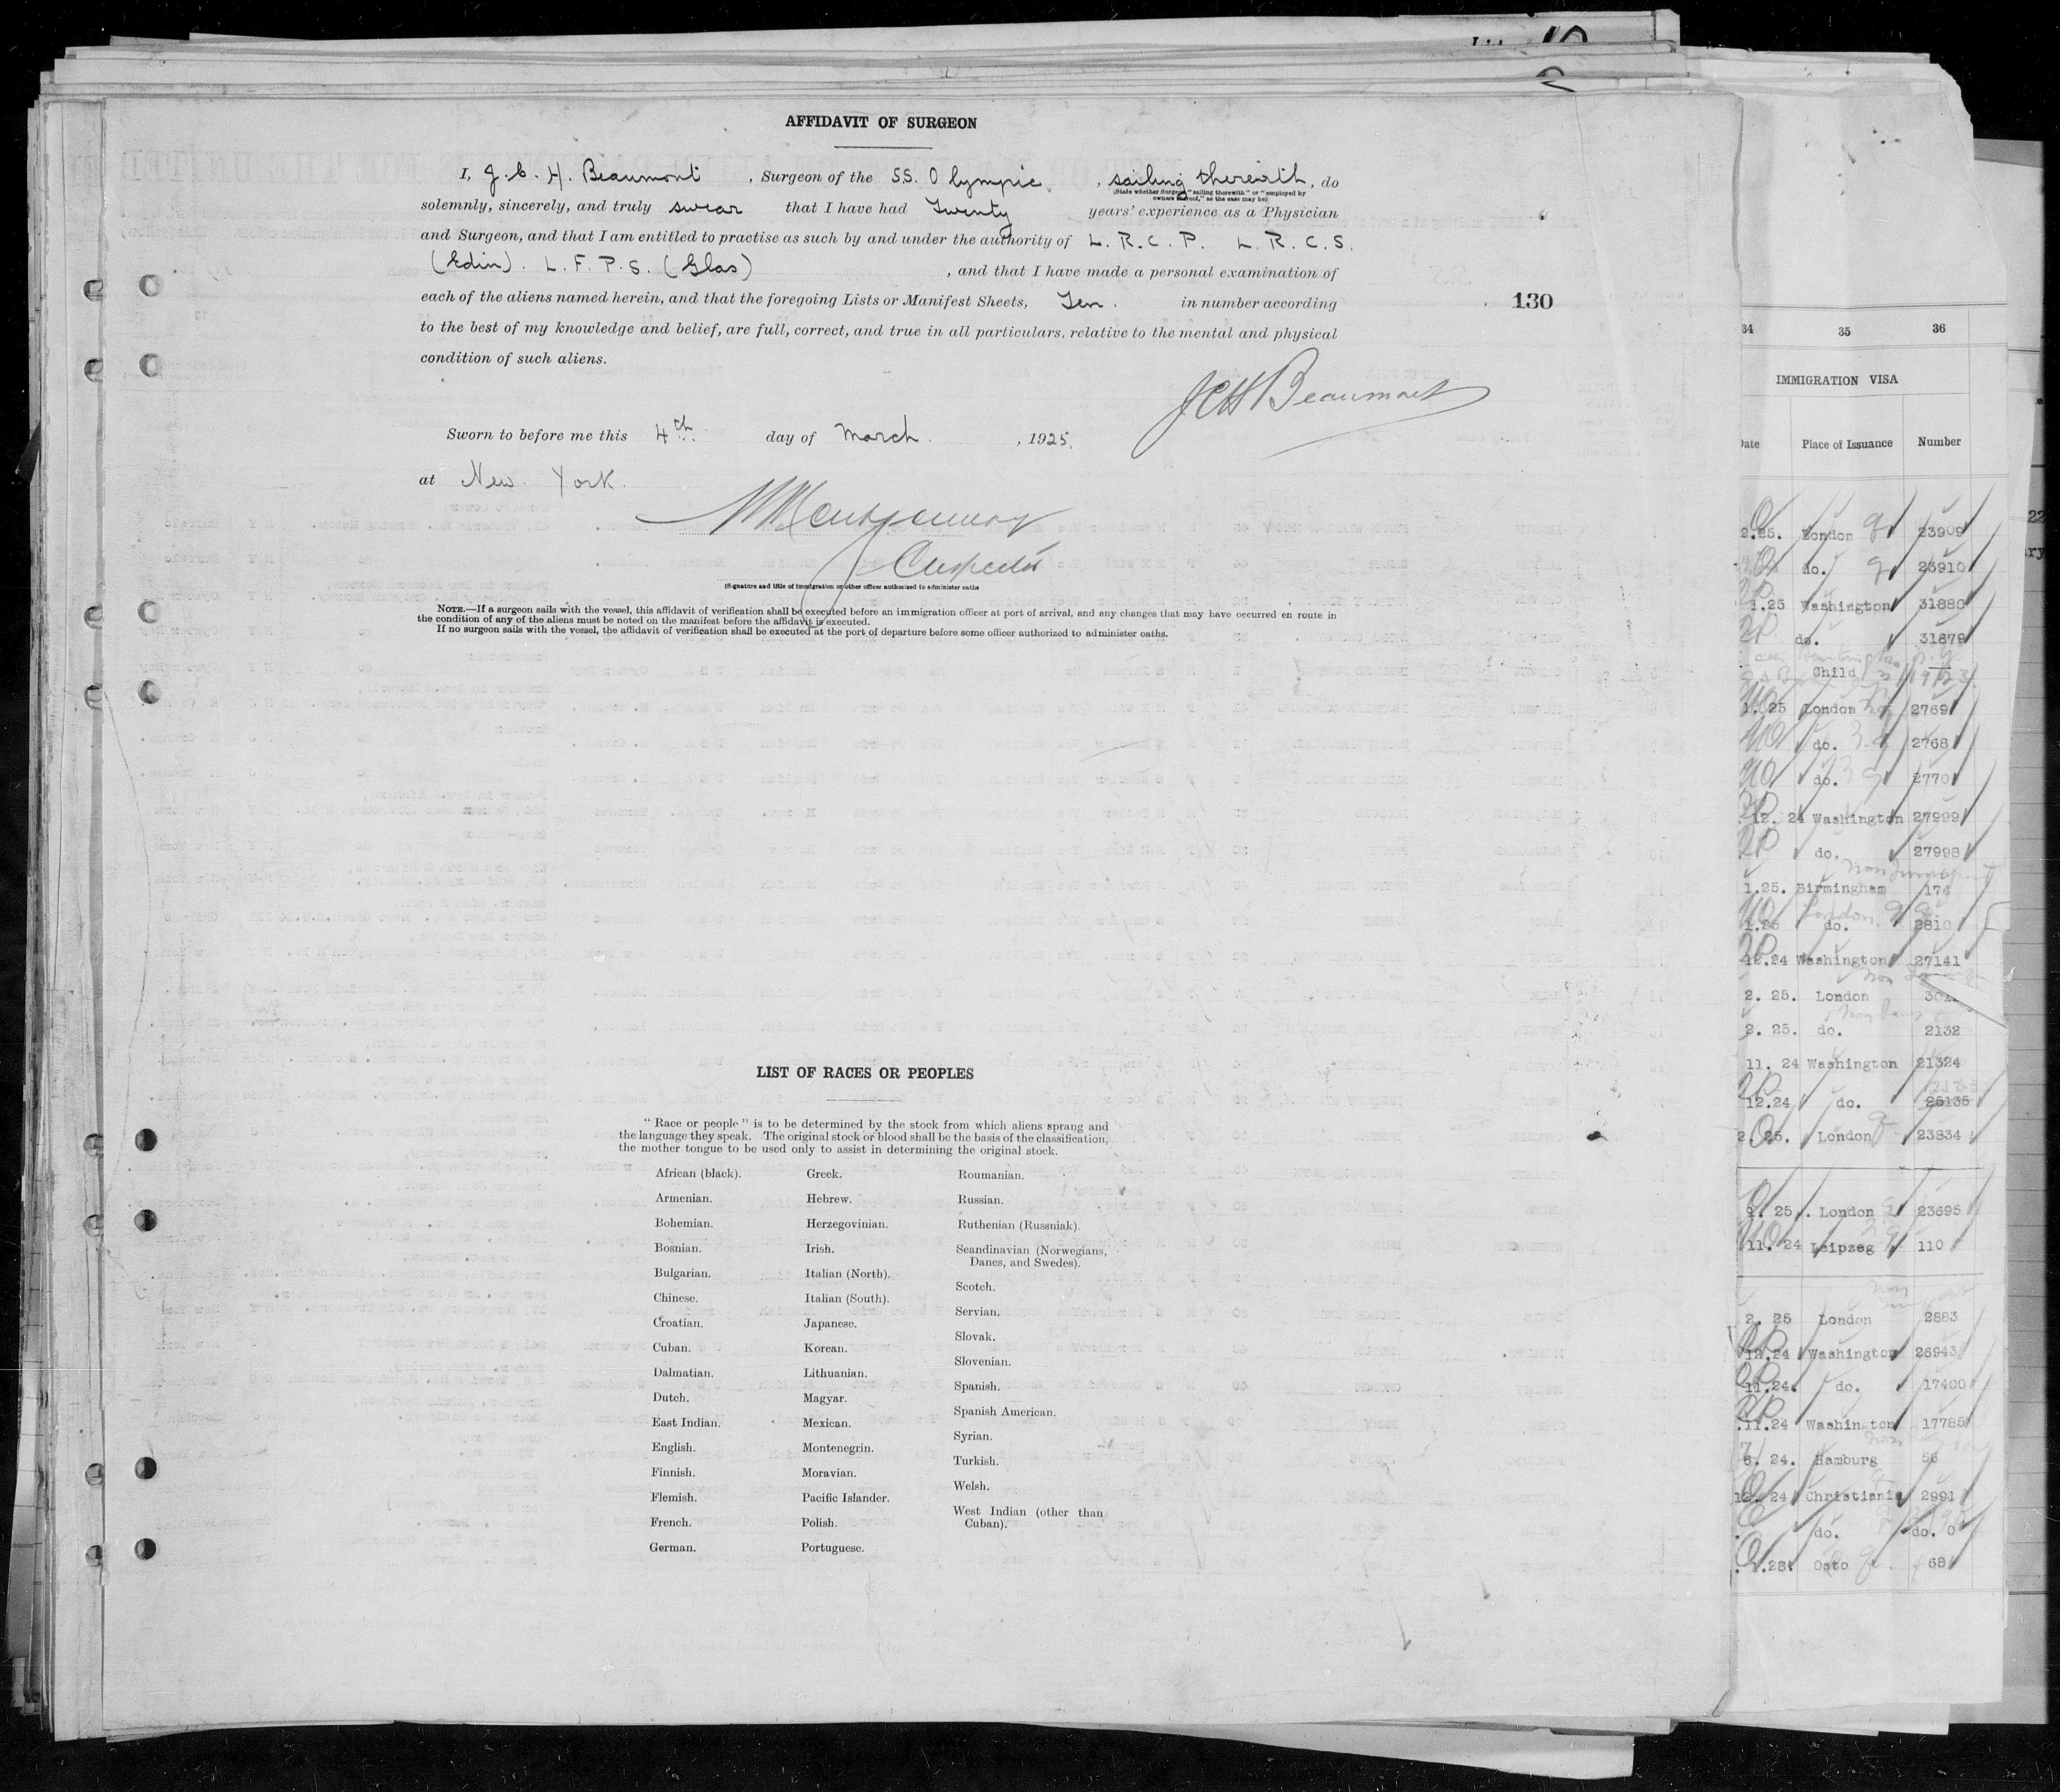 AFFIDAVIT OF SURGEON
I, J. C. H. Beaumont , Surgeon of the S.S. Olympic , sailing therewith, do
(State whether Surgeon "sailing therewith" or "employed by
owners thereof," as the case may be)
solemnly, sincerely, and truly swear that I have had Twenty years' experience as a Physician
and Surgeon, and that I am entitled to practise as such by and under the authority of L. R. C. P. L. R. C. S.
(Edin). L. F. P. S. (Glas) , and that I have made a personal examination of
each of the aliens named herein, and that the foregoing Lists or Manifest Sheets, Ten. in number according
130
to the best of my knowledge and belief, are full, correct, and true in all particulars, relative to the mental and physical
condition of such aliens.
JCH Beaumont
Sworn to before me this 4th day of March. , 1925.
at New York.
Inspector
(Signature and title of immigration or other officer authorized to administer oaths
NOTE.—If a surgeon sails with the vessel, this affidavit of verification shall be executed before an immigration officer at port of arrival, and any changes that may have occurred en route in
the condition of any of the aliens must be noted on the manifest before the affidavit is executed.
If no surgeon sails with the vessel, the affidavit of verification shall be executed at the port of departure before some officer authorized to administer oaths.
LIST OF RACES OR PEOPLES
"Race or people" is to be determined by the stock from which aliens sprang and
the language they speak. The original stock or blood shall be the basis of the classification,
the mother tongue to be used only to assist in determining the original stock.
African (black).
Armenian.
Bohemian.
Bosnian.
Bulgarian.
Chinese.
Croatian.
Cuban.
Dalmatian.
Dutch.
East Indian.
English.
Finnish.
Flemish.
French.
German.
Greek.
Hebrew.
Herzegovinian.
Irish.
Italian (North).
Italian (South).
Japanese.
Korean.
Lithuanian.
Magyar.
Mexican.
Montenegrin.
Moravian.
Pacific Islander.
Polish.
Portuguese.
Roumanian.
Russian.
Ruthenian (Russniak).
Scandinavian (Norwegians,
Danes, and Swedes).
Scotch.
Servian.
Slovak.
Slovenian.
Spanish.
Spanish American.
Syrian.
Turkish.
Welsh.
West Indian (other than
Cuban).
34 35 36
IMMIGRATION VISA
Date Place of Issuance Number
2.25. London 23909
do. 23910
1.25 Washington 31880
do. 31879
Child
1.25 London 2769
do. 2768
do. 2770
12.24 Washington 27999
do. 27998
1.25. Birmingham 174
1.25 do. 2810
12.24 Washington 27141
2. 25. London
2. 25. do. 2132
11. 24 Washington 21324
12.24 do. 25135
2. 25. London 23834
1. 25. London 23695
11. 24 Leipzeg 110
2. 25 London 2883
12.24 Washington 26943
11.24. do. 17400
11.24 Washin ton 17785
6. 24. Hamburg 56
12. 24 Christiania 2991
do. do. 0
1.25 Osto 68